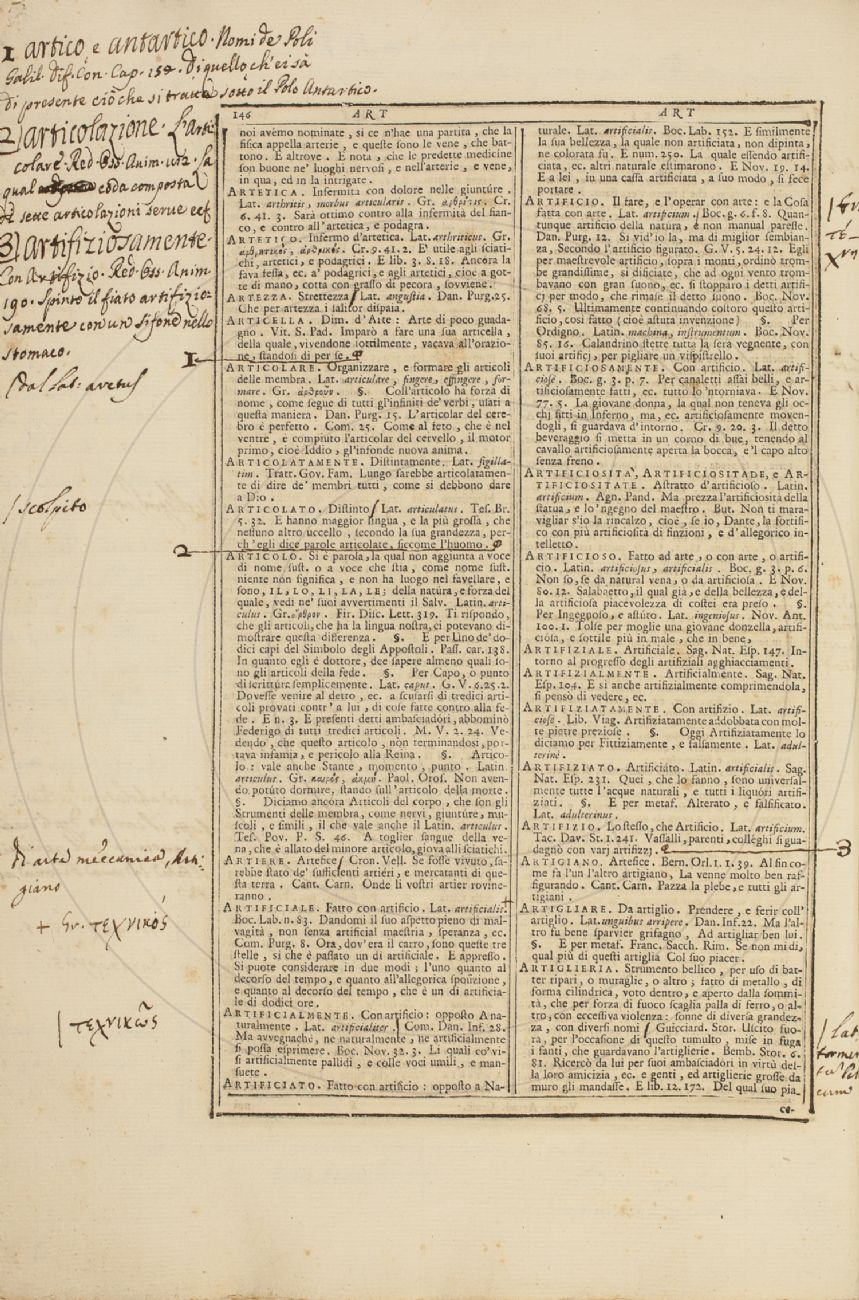 1 artico, e antartico. Nomi de Poli
Galil. Dif. Con. Cap. 158. Di quello, ch'ei sà
di presente ciò che si tratta sotto il Polo Antartico.
2) articolazione. L'arti-
colare. Red. Oss. Anim. 192. La
qual coda composta
di sette articolazioni serue ec.
3) artifiziosamente.
Con Artifizio. Red. Oss. Anim.
190. Spinto il fiato artifizio-
samente con un sifone nello
stomaco.
1
/ dal lat. arctus
/ scolpito
2
di arte meccanica, Arti-
giano
+ Gr. τεχνικός
/ τεχνικῶς
146 ART
noi avémo nominate, si ce n'hae una partita, che la
fisica appella arterie, e queste sono le vene, che bat-
tono. E altrove. E nota, che le predette medicine
son buone ne' luoghi nervosi, e nell'arterie, e vene,
in qua, ed in la intrigate.
ARTETICA. Infermità con dolore nelle giunture.
Lat. arthritis, morbus articularis. Gr. ἀρθρῖτις. Cr.
6. 41. 3. Sarà ottimo contro alla infermità del fian-
co, e contro all'artetica, e podagra.
ARTETICO. Infermo d'artetica. Lat. arthriticus. Gr.
ἀρθριτικὸς, ἀρθρικός. Cr. 9. 41. 2. E' utile agli sciati-
chi, artetici, e podagrici. E lib. 3. 8. 18. Ancora la
fava fessa, ec. a' podagrici, e agli artetici, cioè a got-
te di mano, cotta con grasso di pecora, sovviene.
ARTEZZA. Strettezza / Lat. angustia. Dan. Purg. 25.
Che per artezza i salitor dispaia.
ARTICELLA. Dim. d'Arte: Arte di poco guada-
gno. Vit. S. Pad. Imparò a fare una sua articella,
della quale, vivendone sottilmente, vacava all'orazio-
ne, standosi di per se.
ARTICOLARE. Organizzare, e formare gli articoli
delle membra. Lat. articulare, fingere, effingere, for-
mare. Gr. ἀρθροῦν. §. Coll'articolo ha forza di
nome, come segue di tutti gl'infiniti de' verbi, usati a
questa maniera. Dan. Purg. 15. L'articolar del cere-
bro è perfetto. Com. 25. Come al feto, che è nel
ventre, è compiuto l'articolar del cervello, il motor
primo, cioè Iddio, gl'infonde nuova anima.
ARTICOLATAMENTE. Distintamente. Lat. sigilla-
tim. Tratt. Gov. Fam. Lungo sarebbe articolatamen-
te di dire de' membri tutti, come si debbono dare
a Dio.
ARTICOLATO. Distinto / Lat. articulatus. Tes. Br.
5. 32. E hanno maggior lingua, e la più grossa, che
nessuno altro uccello, secondo la sua grandezza, per-
ch'egli dice parole articolate, siccome l'huomo.
ARTICOLO. Si è parola, la qual non aggiunta a voce
di nome sust. o a voce che stia, come nome sust.
niente non significa, e non ha luogo nel favellare, e
sono, IL, LO, LI, LA, LE; della natura, e forza del
quale, vedi ne' suoi avvertimenti il Salv. Latin. arti-
culus. Gr. ἄρθρον. Fir. Disc. Lett. 319. Ti rispondo,
che gli articoli, che ha la lingua nostra, ci potevano di-
mostrare questa differenza. §. E per Uno de' do-
dici capi del Simbolo degli Appostoli. Pass. car. 138.
In quanto egli è dottore, dee sapere almeno quali so-
no gli articoli della fede. §. Per Capo, o punto
di scrittura semplicemente. Lat. caput. G. V. 6. 25. 2.
Dovesse venire al detto, ec. a scusarsi di tredici arti-
coli provati contr' a lui, di cose fatte contro alla fe-
de. E n. 3. E presenti detti ambasciadori, abbominò
Federigo di tutti tredici articoli. M. V. 2. 24. Ve-
dendo, che questo articolo, non terminandosi, por-
tava infamia, e pericolo alla Reina. §. Artico-
lo: vale anche Stante, momento, punto. Latin
articulus. Gr. καιρὸς, ἀκμή. Paol. Oros. Non aven-
do potuto dormire, stando sull'articolo della morte.
§. Diciamo ancora Articoli del corpo, che son gli
Strumenti delle membra, come nervi, giunture, mu-
scoli, e simili, il che vale anche il Latin. articulus.
Tes. Pov. P. S. 46. A toglier sangue della ve-
na, che è allato del minore articolo, giova alli sciatichi.
ARTIERE. Artefice / Cron. Vell. Se fosse vivuto, sa-
rebbe stato de' sufficienti artieri, e mercatanti di que-
sta terra. Cant. Carn. Onde li vostri artier rovine-
ranno.
ARTIFICIALE. Fatto con artificio. Lat. artificialis.
Boc. Lab. n. 83. Dandomi il suo aspetto pieno di mal-
vagità, non senza artificial maestria, speranza, ec.
Com. Purg. 8. Ora, dov'era il carro, sono queste tre
stelle, sì che è passato un dì artificiale. E appresso.
Si puote considerare in due modi; l'uno quanto al
decorso del tempo, e quanto all'allegorica sposizione,
e quanto al decorso del tempo, che è un dì artificia-
le di dodici ore.
ARTIFICIALMENTE. Con artificio: opposto a na-
turalmente. Lat. artificialiter / Com. Dan. Inf. 28.
Ma avvegnachè, ne naturalmente, ne artificialmente
si possa esprimere. Boc. Nov. 32. 3. Li quali co' vi-
si artificialmente pallidi, e colle voci umili, e man-
suete.
ARTIFICIATO. Fatto con artificio: opposto a Na-
ART
turale. Lat. artificialis. Boc. Lab. 152. E similmente
la sua bellezza, la quale non artificiata, non dipinta,
ne colorata fu. E num. 250. La quale essendo artifi-
ciata, ec. altri naturale estimarono. E Nov. 19. 14.
E a lei, in una cassa artificiata, a suo modo, si fece
portare.
ARTIFICIO. Il fare, e l'operar con arte: e la Cosa
fatta con arte. Lat. artificium. / Boc. g. 6. f. 8. Quan-
tunque artificio della natura, e non manual paresse.
Dan. Purg. 12. Sì vid'io la, ma di miglior sembian-
za, Secondo l'artificio figurato. G. V. 5. 24. 12. Egli
per maestrevole artificio, sopra i monti, ordinò trom-
be grandissime, sì dificiate, che ad ogni vento trom-
bavano con gran suono, ec. si stopparo i detti artifi-
cj per modo, che rimase il detto suono. Boc. Nov.
68. 5. Ultimamente continuando costoro questo arti-
ficio, così fatto (cioè astuta invenzione) §. Per
Ordigno. Latin. machina, instrumentum. Boc. Nov.
85. 16. Calandrino stette tutta la sera vegnente, con
suoi artificj, per pigliare un vispistrello.
ARTIFICIOSAMENTE. Con artificio. Lat. artifi-
ciosè. Boc. g. 3. p. 7. Per canaletti assai belli, e ar-
tificiosamente fatti, ec. tutto lo 'ntorniava. E Nov.
77. 5. La giovane donna, la qual non teneva gli oc-
chj fitti in Inferno, ma, ec. artificiosamente moven-
dogli, si guardava d'intorno. Cr. 9. 20. 3. Il detto
beveraggio si metta in un corno di bue, tenendo al
cavallo artificiosamente aperta la bocca, e 'l capo alto
senza freno.
ARTIFICIOSITÀ, ARTIFICIOSITADE, e AR-
TIFICIOSITATE. Astratto d'artificioso. Latin.
artificium. Agn. Pand. Ma prezza l'artificiosità della
statua, e lo 'ngegno del maestro. But. Non ti mara-
vigliar s'io la rincalzo, cioè, se io, Dante, la fortifi-
co con più artificiosità di finzioni, e d'allegorico in-
telletto.
ARTIFICIOSO. Fatto ad arte, o con arte, o artifi-
cio. Latin. artificiosus, artificialis. Boc. g. 3. p. 6.
Non so, se da natural vena, o da artificiosa. E Nov.
80. 12. Salabaetto, il qual già, e della bellezza, e del-
la artificiosa piacevolezza di costei era preso. §.
Per Ingegnoso, e astuto. Lat. ingeniosus. Nov. Ant.
100. 1. Tolse per moglie una giovane donzella, artifi-
ciosa, e sottile più in male, che in bene,
ARTIFIZIALE. Artificiale. Sag. Nat. Esp. 147. In-
torno al progresso degli artifiziali agghiacciamenti.
ARTIFIZIALMENTE. Artificialmente. Sag. Nat.
Esp. 104. E sì anche artifizialmente comprimendola,
si pensò di vedere, ec.
ARTIFIZIATAMENTE. Con artifizio. Lat. artifi-
ciosè. Lib. Viag. Artifiziatamente addobbata con mol-
te pietre preziose. §. Oggi Artifiziatamente lo
diciamo per Fittiziamente, e falsamente. Lat. adul-
terinè.
ARTIFIZIATO. Artificiato. Latin. artificialis. Sag.
Nat. Esp. 231. Quei, che lo fanno, sono universal-
mente tutte l'acque naturali, e tutti i liquori artifi-
ziati. §. E per metaf. Alterato, e falsificato.
Lat. adulterinus.
ARTIFIZIO. Lo stesso, che Artificio. Lat. artificium.
Tac. Dav. St. 1. 241. Vassalli, parenti, colléghi si gua-
dagnò con varj artifizj.
ARTIGIANO. Artefice. Bern. Orl. 1. 1. 39. Al fin co-
me fa l'un l'altro artigiano, La venne molto ben raf-
figurando. Cant. Carn. Pazza la plebe, e tutti gli ar-
tigiani.
ARTIGLIARE. Da artiglio. Prendere, e ferir coll'
artiglio. Lat. unguibus arripere. Dan. Inf. 22. Ma l'al-
tro fu bene sparvier grifagno, Ad artigliar ben lui.
§. E per metaf. Franc. Sacch. Rim. Se non mi di,
qual più di questi artiglia Col suo piacer.
ARTIGLIERIA. Strumento bellico, per uso di bat-
ter ripari, o muraglie, o altro; fatto di metallo, di
forma cilindrica, voto dentro, e aperto dalla sommi-
tà, che per forza di fuoco scaglia palla di ferro, o al-
tro, con eccessiva violenza: sonne di diversa grandez-
za, con diversi nomi / Guicciard. Stor. Uscito fuo-
ra, per l'occasione di questo tumulto, mise in fuga
i fanti, che guardavano l'artiglierie. Bemb. Stor. 6.
81. Ricercò da lui per suoi ambasciadori in virtù del-
la loro amicizia, ec. e genti, ed artiglierie grosse da
muro gli mandasse. E lib. 12. 172. Del qual suo pia-
ce-
3
/ Lat.
tormen-